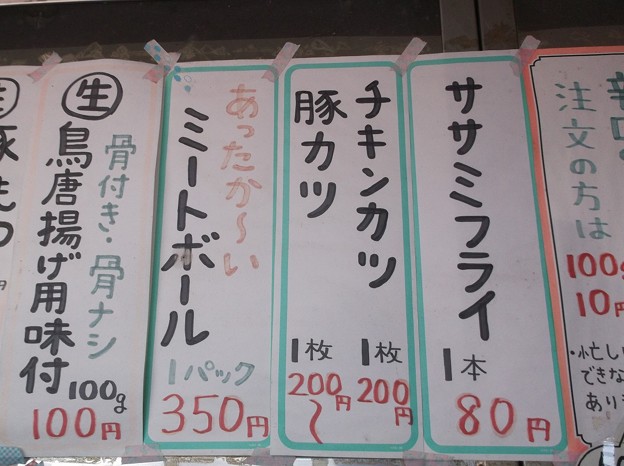 注文の方は
100g
10円
・忙しい
できな
あり
ササミフライ
1本
80円
チキンカツ
1枚
200円
豚カツ
1枚
200円〜
あったか〜い
ミートボール
1パック
350円
骨付き・骨ナシ
生 鳥唐揚げ用味付
100g
100円